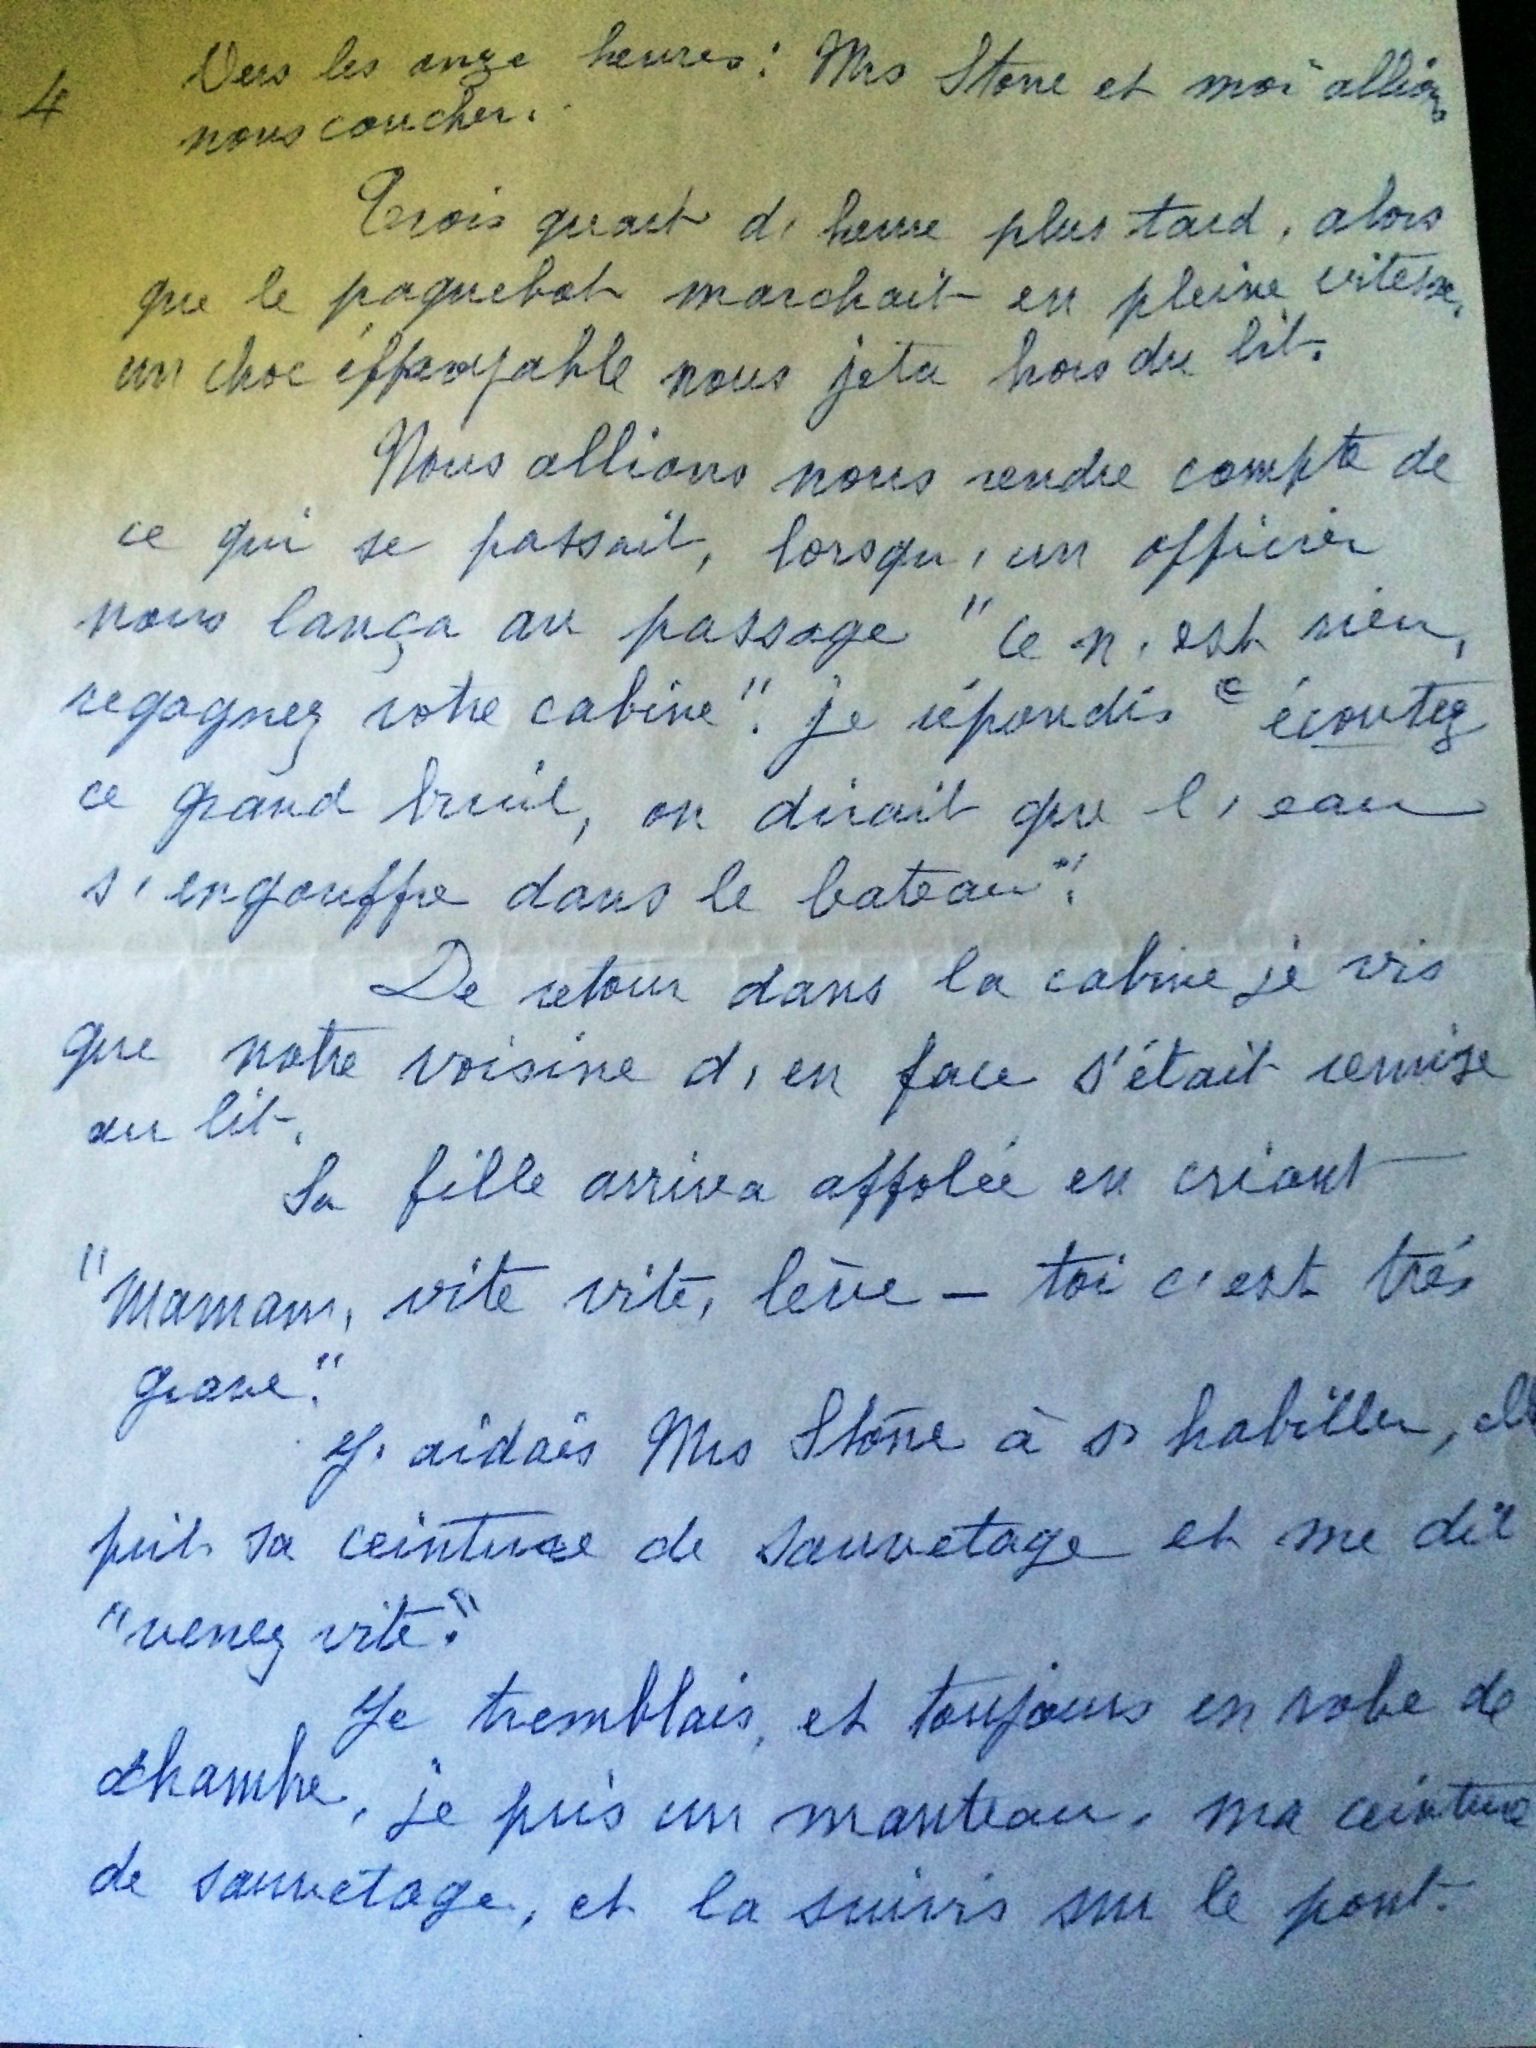 4
Vers les onze heures: Mrs Stone et moi allions
nous coucher.
Trois quart d'heure plus tard, alors
que le paquebot marchait en pleine vitesse,
un choc éffroyable nous jeta hors du lit.
Nous allions nous rendre compte de
ce qui se passait, lorsqu'un officier
nous lança au passage "Ce n'est rien,
regagnez votre cabine". je répondis "écoutez
ce grand bruit, on dirait que l'eau
s'engouffre dans le bateau".
De retour dans la cabine je vis
que notre voisine d'en face s'était remise
au lit.
Sa fille arriva affolée en criant
"Maman, vite vite, lève-toi c'est trés
grave."
J'aidais Mrs Stone à s'habiller, elle
prit sa ceinture de sauvetage et me dit
"venez vite."
Je tremblais, et toujours en robe de
chambre, je pris un manteau, ma ceinture
de sauvetage, et la suivis sur le pont.